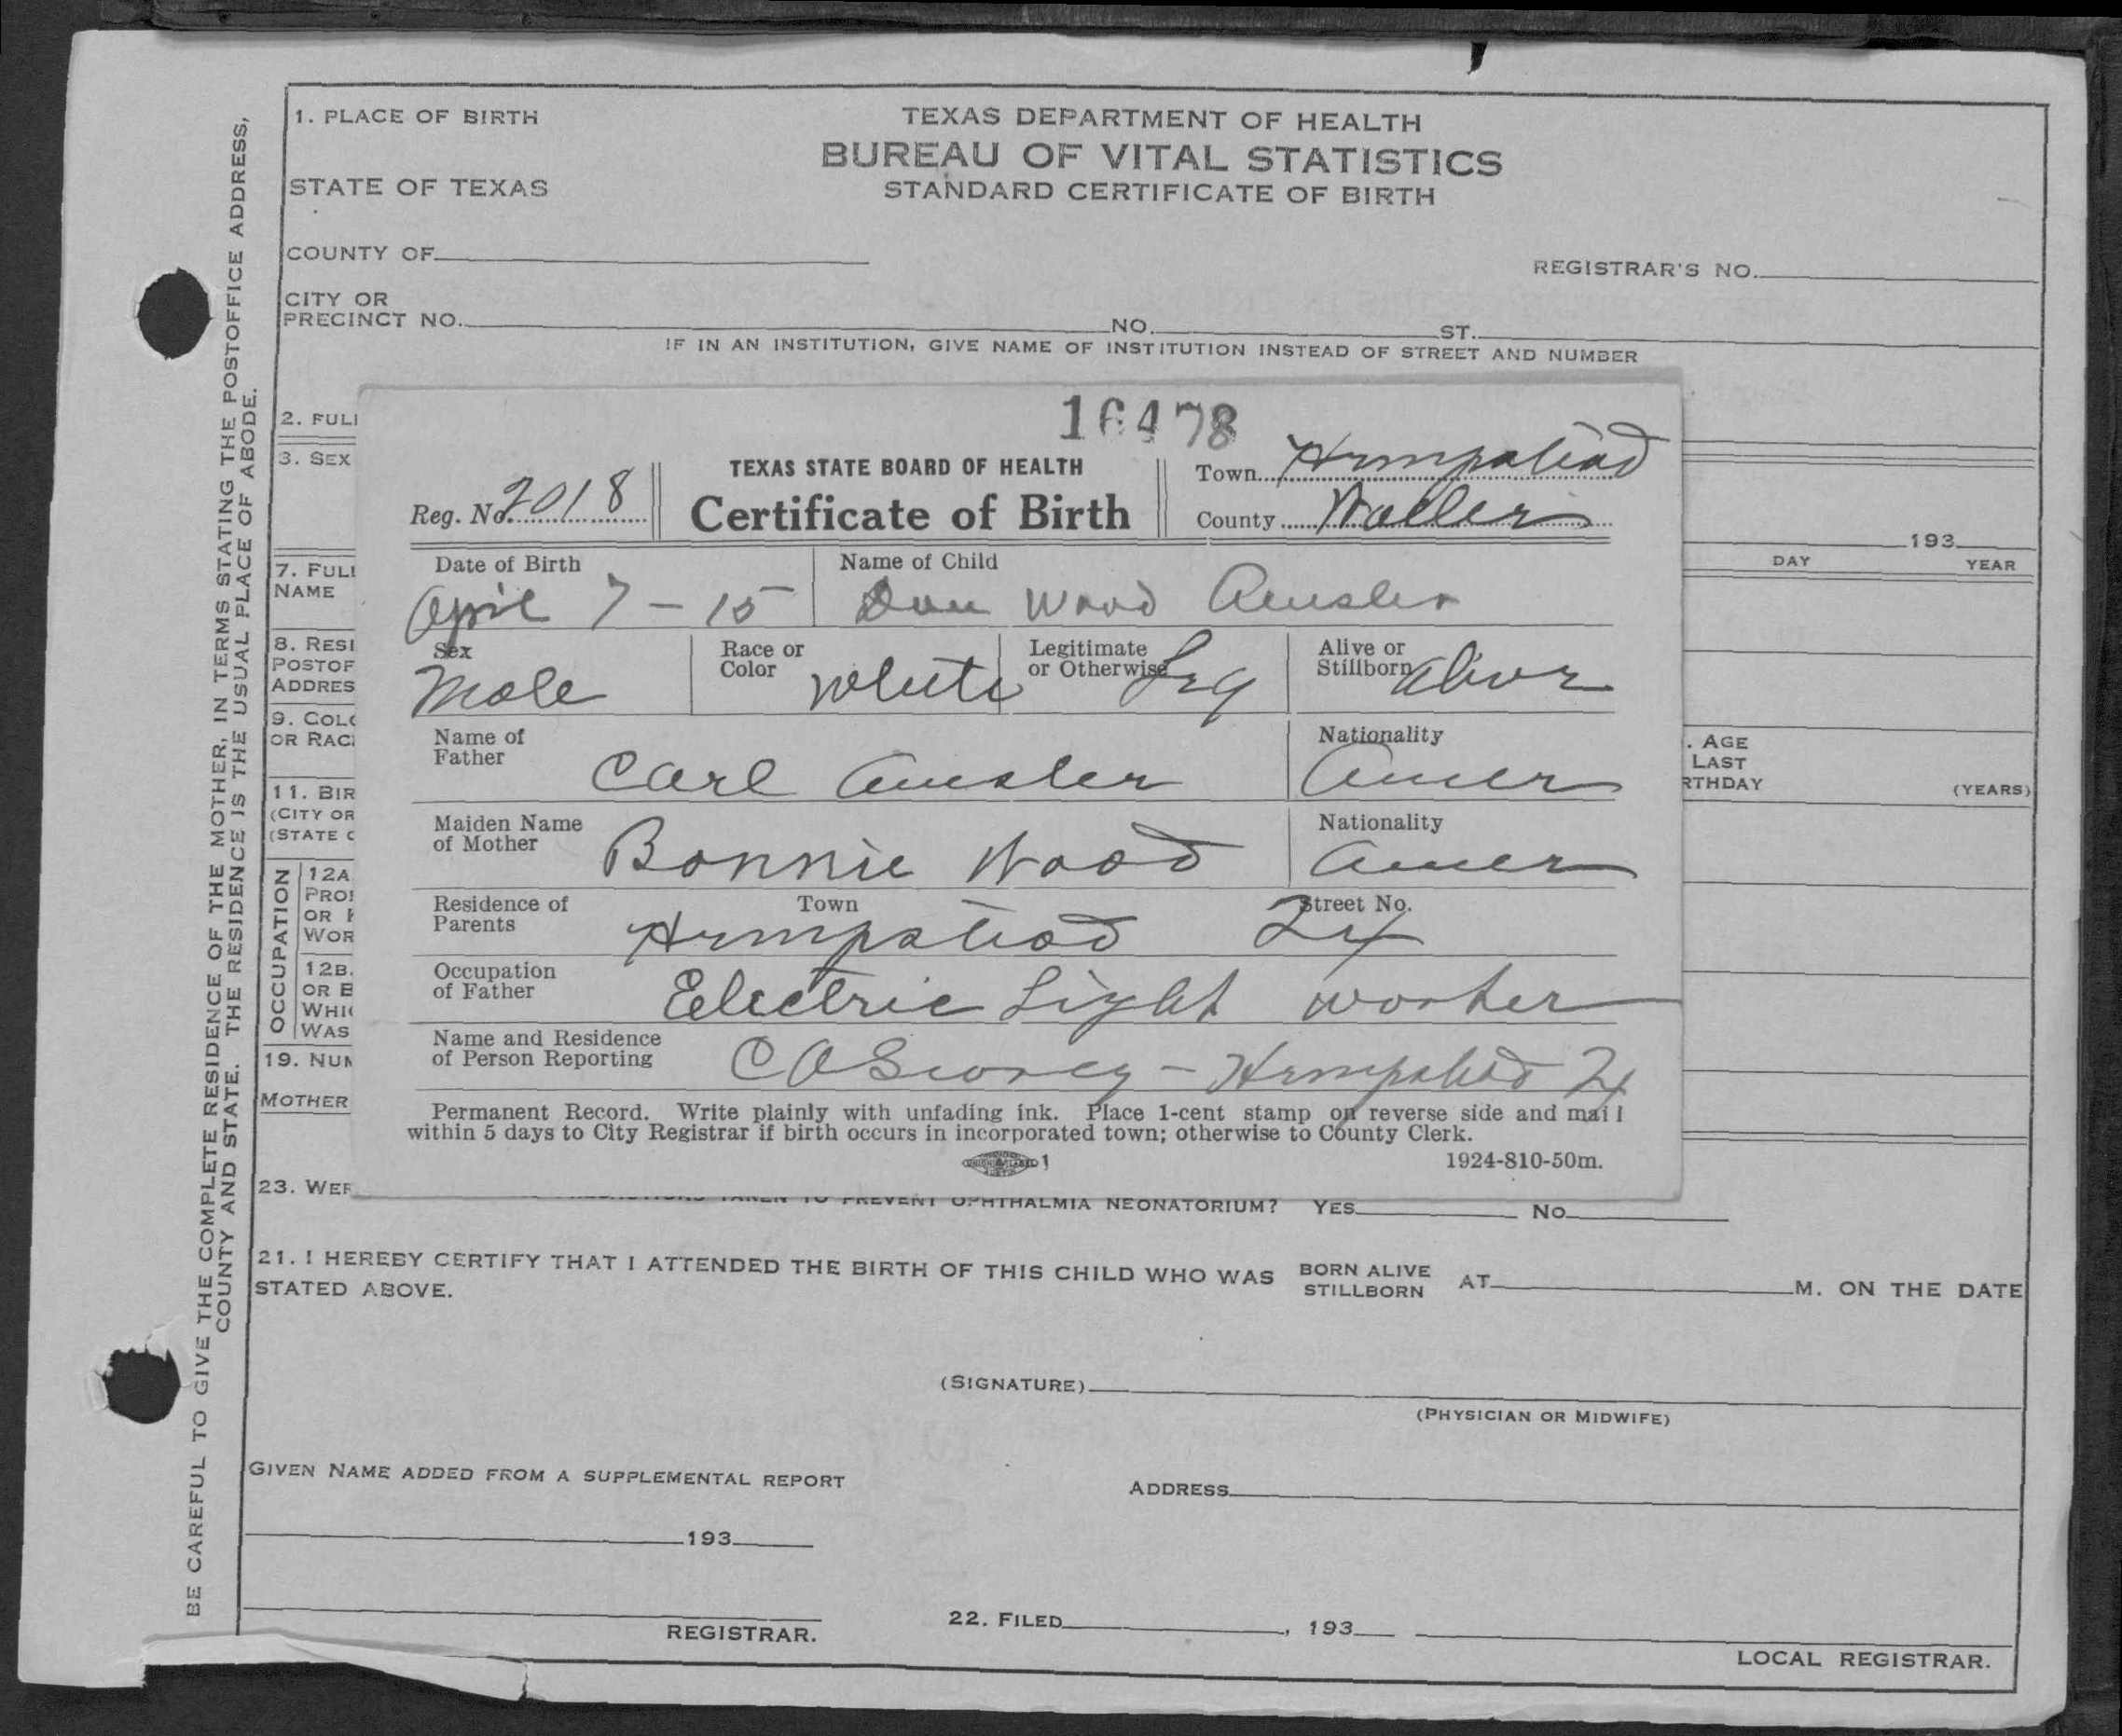 1. PLACE OF BIRTH
TEXAS DEPARTMENT OF HEALTH
BUREAU OF VITAL STATISTICS
STANDARD CERTIFICATE OF BIRTH
STATE OF TEXAS
COUNTY OF
REGISTRAR'S NO.
CITY OR
PRECINCT NO. NO. ST.
IF IN AN INSTITUTION, GIVE NAME OF INSTITUTION INSTEAD OF STREET AND NUMBER
2. FULL
3. SEX
193
DAY YEAR
7. FULL
NAME
8. RESI
POSTOF
ADDRES
9. COLO
OR RAC
. AGE
LAST
RTHDAY (YEARS)
11. BIR
(CITY OR
(STATE
OCCUPATION
12A
PRO
OR
WOR
12B.
OR
WHI
WAS
19. NUM
MOTHER
16478
Reg. No. 2018
TEXAS STATE BOARD OF HEALTH
Certificate of Birth
Town Hempstead
County Waller
Date of Birth Name of Child
April 7 - 15 Don Wood Amsler
Sex Male
Race or Color White
Legitimate or Otherwise Leg
Alive or Stillborn Alive
Name of Father Carl Amsler
Nationality Amer
Maiden Name of Mother Bonnie Wood
Nationality Amer
Residence of Parents Town Hempstead Street No. Tx
Occupation of Father Electric Light worker
Name and Residence of Person Reporting C O - Hempstead Tx
Permanent Record. Write plainly with unfading ink. Place 1-cent stamp on reverse side and mail
within 5 days to City Registrar if birth occurs in incorporated town; otherwise to County Clerk.
1
1924-810-50m.
23. WER TAKEN TO PREVENT OPHTHALMIA NEONATORIUM? YES NO
21. I HEREBY CERTIFY THAT I ATTENDED THE BIRTH OF THIS CHILD WHO WAS BORN ALIVE STILLBORN AT M. ON THE DATE
STATED ABOVE.
(SIGNATURE)
(PHYSICIAN OR MIDWIFE)
GIVEN NAME ADDED FROM A SUPPLEMENTAL REPORT
ADDRESS
193
REGISTRAR.
22. FILED , 193
LOCAL REGISTRAR.
BE CAREFUL TO GIVE THE COMPLETE RESIDENCE OF THE MOTHER, IN TERMS STATING THE POSTOFFICE ADDRESS,
COUNTY AND STATE. THE RESIDENCE IS THE USUAL PLACE OF ABODE.